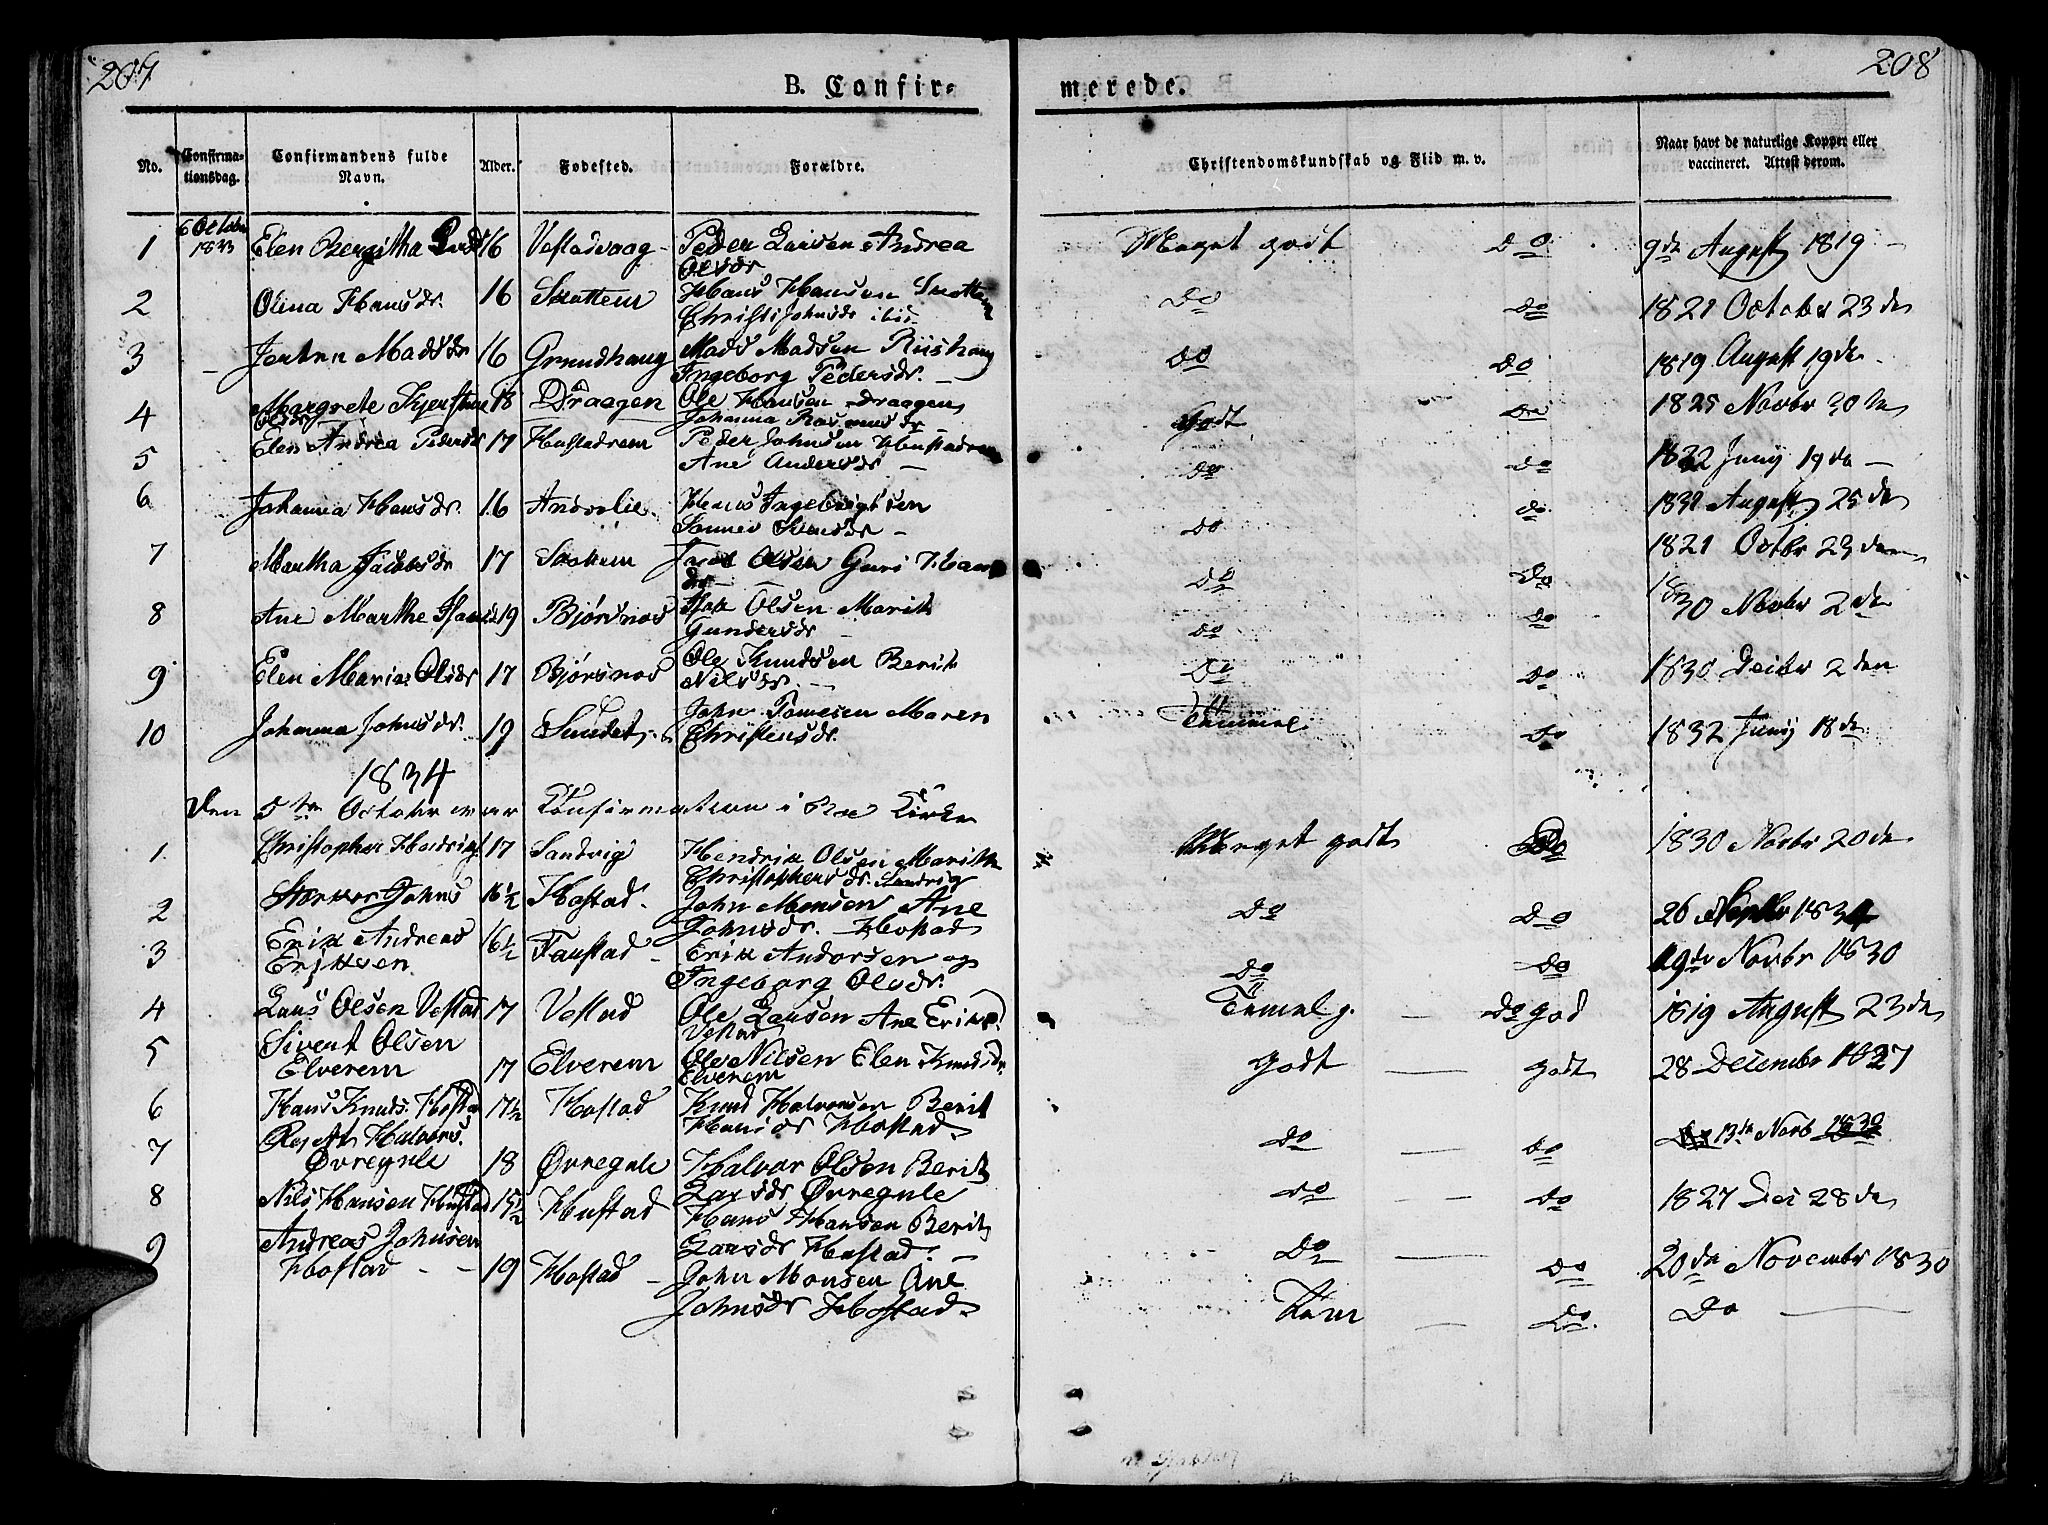 207
208
B. Confir-
merede.
No.
Confirma-
tionsdag.
Confirmandens fulde
Navn.
Alder.
Fødested.
Forældre.
Christendomskundskab og Flid m. v.
Naar havt de naturlige Kopper eller
vaccineret. Attest derom.
6 October
1833
1 Elen Bergitha 16 Vestadvaag Peder Larsen Andrea
Olsdr
Meget godt do 9de August 1819
2 Olina Hansdr. 16 Skottem Hans Hansen Skottem
Christi Johnsdr ibid
do do 1821 October 23de
3 Madsdr 16 Grundhaug Mads Madsen Riishaug
Ingeborg Pedersdr.
do do 1819 August 19de
4 Margrete Kjerstine 18 Draagen Ole Hansen Draagen
Olsdr Johanna Rasmusdr
Godt do 1825 Novbr 30de
5 Elen Andrea Pedersdr 17 Hustadrem Peder Johnsen Hustadrem
Ane Andersdr
do do 1832 Junij 19de
6 Johanna Hansdr. 16 Andslie Hans Ingebrigtsen
do do 1831 August 25de
7 Martha Jacobsdr 17 Olsen Guri Hans
dr
do do 1821 Octbr 23de
8 Ane Marthe 19 Bjørsnos Isak Olsen Marith
Gundersdr
do do 1830 Novbr 2de
9 Elen Maria Olsdr 17 Bjørsnos Ole Knudsen Berith
Nilsdr.
do do 1830 Decbr 2den
10 Johanna Johnsdr. 19 Sundet John Tomesen Maren
Christensdr.
Temmel do 1832 Junij 18de
1834
Den 5te October var Confirmation i Kirke
1 Christopher Hendriks 17 Sandvig Hendrik Olsen Marith
Christophersdr. Sandvig
Meget godt do 1830 Novbr 20de
2 Johns 16½ Hostad. John Monsen Ane
Johnsdr. Hostad
do do 26 1834
3 Erik Andreas 16½ Faustad Erik Andersen og
Eriksen Ingeborg Olsdr.
do do 19de Novbr 1830
4 Lars Olsen Vestad 17 Vestad Ole Larsen Ane Eriks
Vestad
Temmelg. do god 1819 August 23de
5 Sivert Olsen
Elverem 17 Elverem Ole Nilsen Elen Knudsdr
Elverem
Godt godt 28 December 1827
6 Hans Knuds. Hostad 17½ Hostad Knud Halvorsen Berit
Hansdr Hostad
do do 13de Novb 1830
7 Halvors.
Øvregule 18 Øvregule Halvor Olsen Berit
Larsdr Øvregule
do do 1827 Dec 28de
8 Nils Hansen Hustad 15½ Hustad Hans Hansen Berit
Larsdr Hustad.
do do 20de November 1830
9 Andreas Johnsen
Hostad 19 Hostad John Monsen Ane
Johnsdr Hostad
Tem do Do